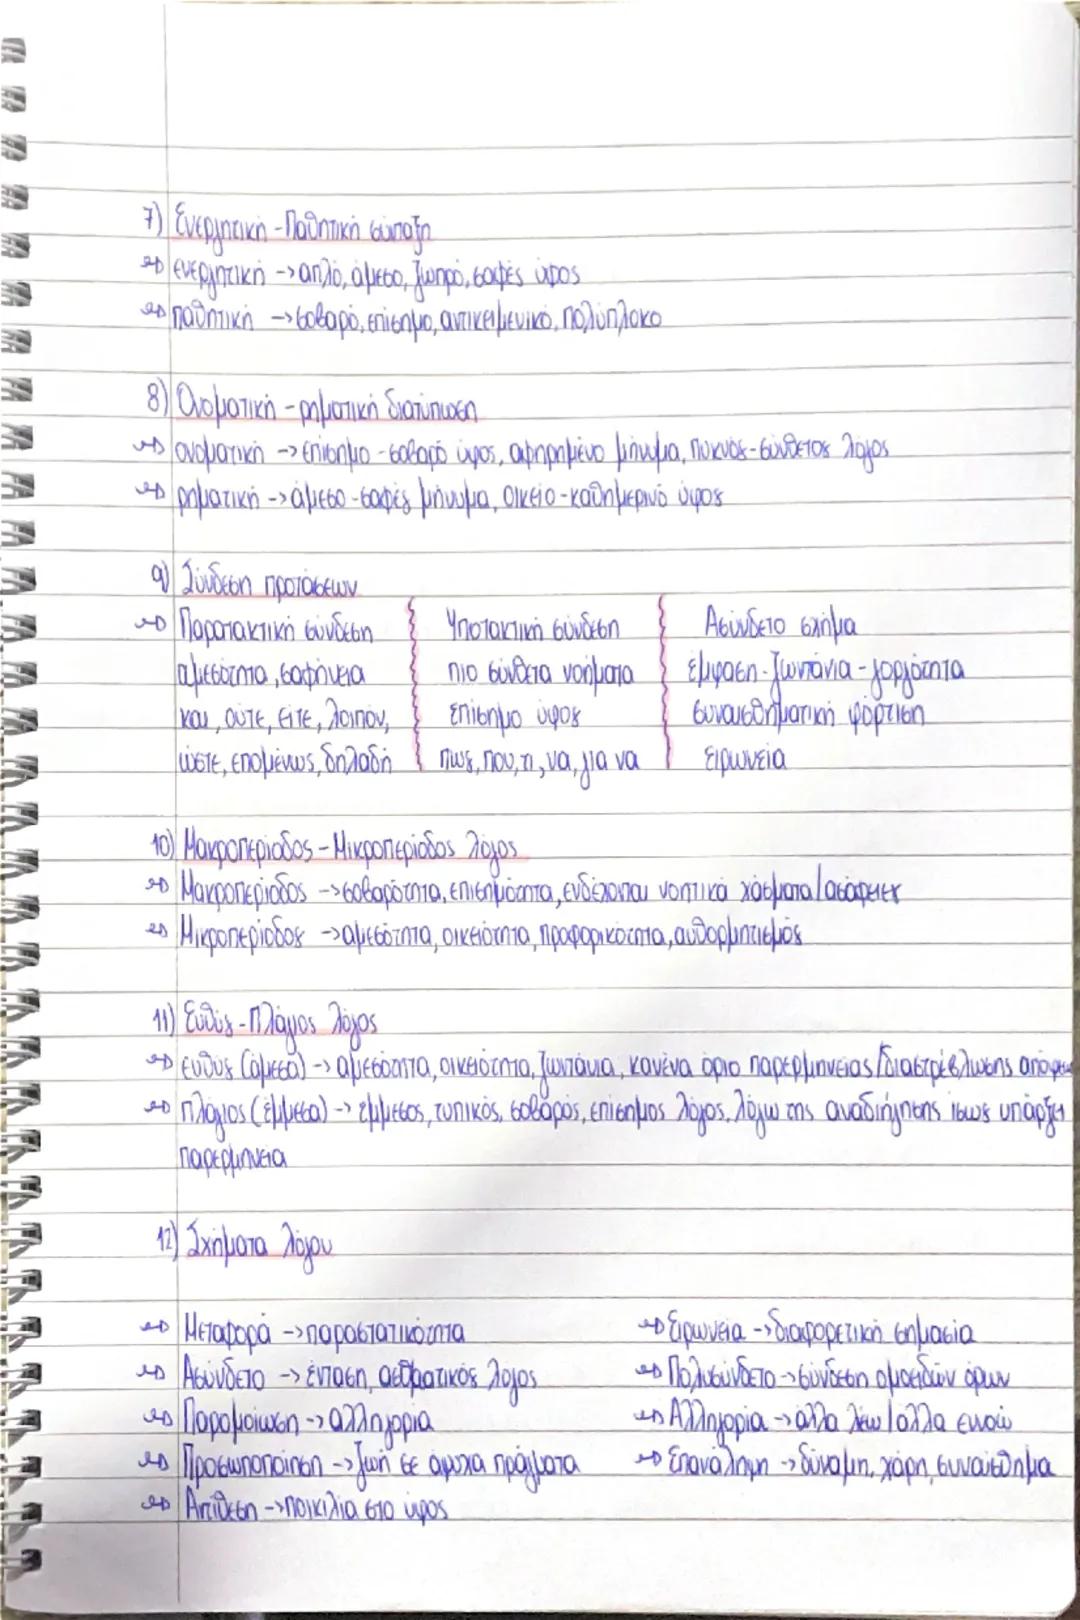 7) Ενεργητική - Παθητική σύνταξη
ενεργητική -> απλό, άμεσο, ζωηρό, σαφές ύφος
παθητική -> σοβαρό, επίσημο, αντικειμενικό, πολύπλοκο
8) Ονοματική - ρηματική διατύπωση
ονοματική -> επίσημο - σοβαρό ύφος, αφηρημένο μήνυμα, πυκνός - σύνθετος λόγος
ρηματική -> άμεσο - σαφές μήνυμα, οικείο - καθημερινό ύφος
9) Σύνδεση προτάσεων
Παρατακτική σύνδεση
αμεσότητα, σαφήνεια
και, ούτε, είτε, λοιπόν,
ώστε, επομένως, δηλαδή
Υποτακτική σύνδεση
πιο σύνθετα νοήματα
επίσημο ύφος
πως, που, τι, να, για να
Ασύνδετο σχήμα
έμφαση - ζωντάνια - γοργότητα
συναισθηματική φόρτιση
ειρωνεία
10) Μακροπερίοδος - Μικροπερίοδος λόγος
Μακροπερίοδος -> σοβαρότητα, επισημότητα, ενδέχονται νοητικά χάσματα/ασάφειες
Μικροπερίοδος -> αμεσότητα, οικειότητα, προφορικότητα, αυθορμητισμός
11) Ευθύς - Πλάγιος λόγος
ευθύς (άμεσα) -> αμεσότητα, οικειότητα, ζωντάνια, κανένα όριο παρερμηνείας/διαστρέβλωσης
πλάγιος (έμμεσα) -> έμμεσος, τυπικός, σοβαρός, επίσημος λόγος, λόγω της αναδιήγησης ίσως υπάρξει
παρερμηνεία
12) Σχήματα λόγου
Μεταφορά -> παραστατικότητα
Ασύνδετο -> ένταση, ασθματικός λόγος
Παρομοίωση -> αλληγορία
Προσωποποίηση -> ζωή σε άψυχα πράγματα
Αντίθεση -> ποικιλία στο ύφος
Ειρωνεία -> διαφορετική σημασία
Πολυσύνδετο -> σύνδεση ομοειδών όρων
Αλληγορία -> άλλα λέω/άλλα εννοώ
Επανάληψη -> δύναμη, χάρη, συναίσθημα